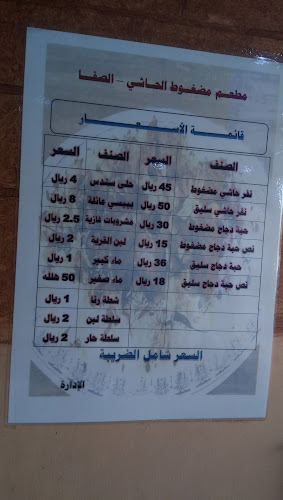 مطعم مضغوط الحاشي - الصفا
قائمة الأسعار
الصنف السعر الصنف السعر
نفر حاشي مضغوط 45 ريال حلى سندس 4 ريال
نفر حاشي سليق 50 ريال بيبسي عائلة 8 ريال
حبة دجاج مضغوط 30 ريال مشروبات غازية 2.5 ريال
نص حبة دجاج مضغوط 15 ريال لبن القرية 2 ريال
حبة دجاج سليق 36 ريال ماء كبير 1 ريال
نص حبة دجاج سليق 18 ريال ماء صغير 50 هلله
شطة رنا 1 ريال
سلطة لبن 2 ريال
سلطة حار 2 ريال
السعر شامل الضريبة
الإدارة